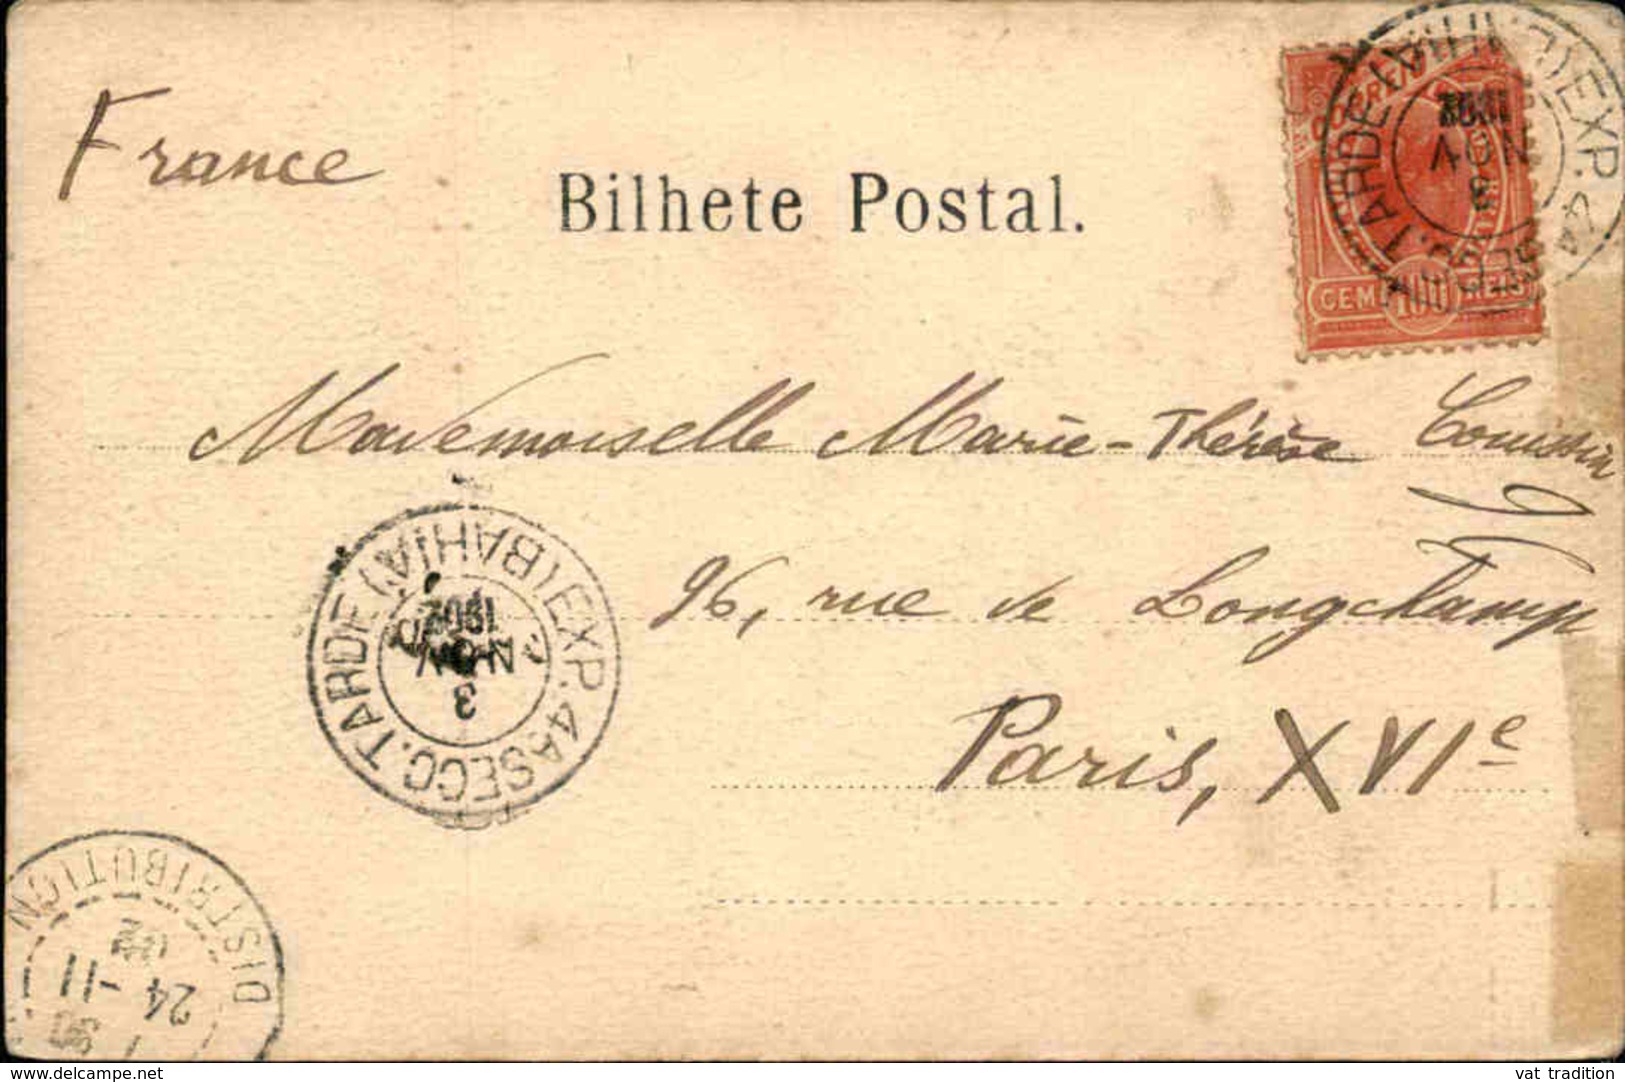 France
Bilhete Postal.
CORREIO
CEM 100 REIS
4A SECC. TARDE (BAHIA) EXP.
3
NOV
1902
Mademoiselle Marie-Thérèse
96, rue de Longchamp
Paris, XVIe
4A SECC. TARDE (BAHIA) EXP.
3
NOV
1902
DISTRIBUTION
24 -11
02
vat tradition
delcampe.net